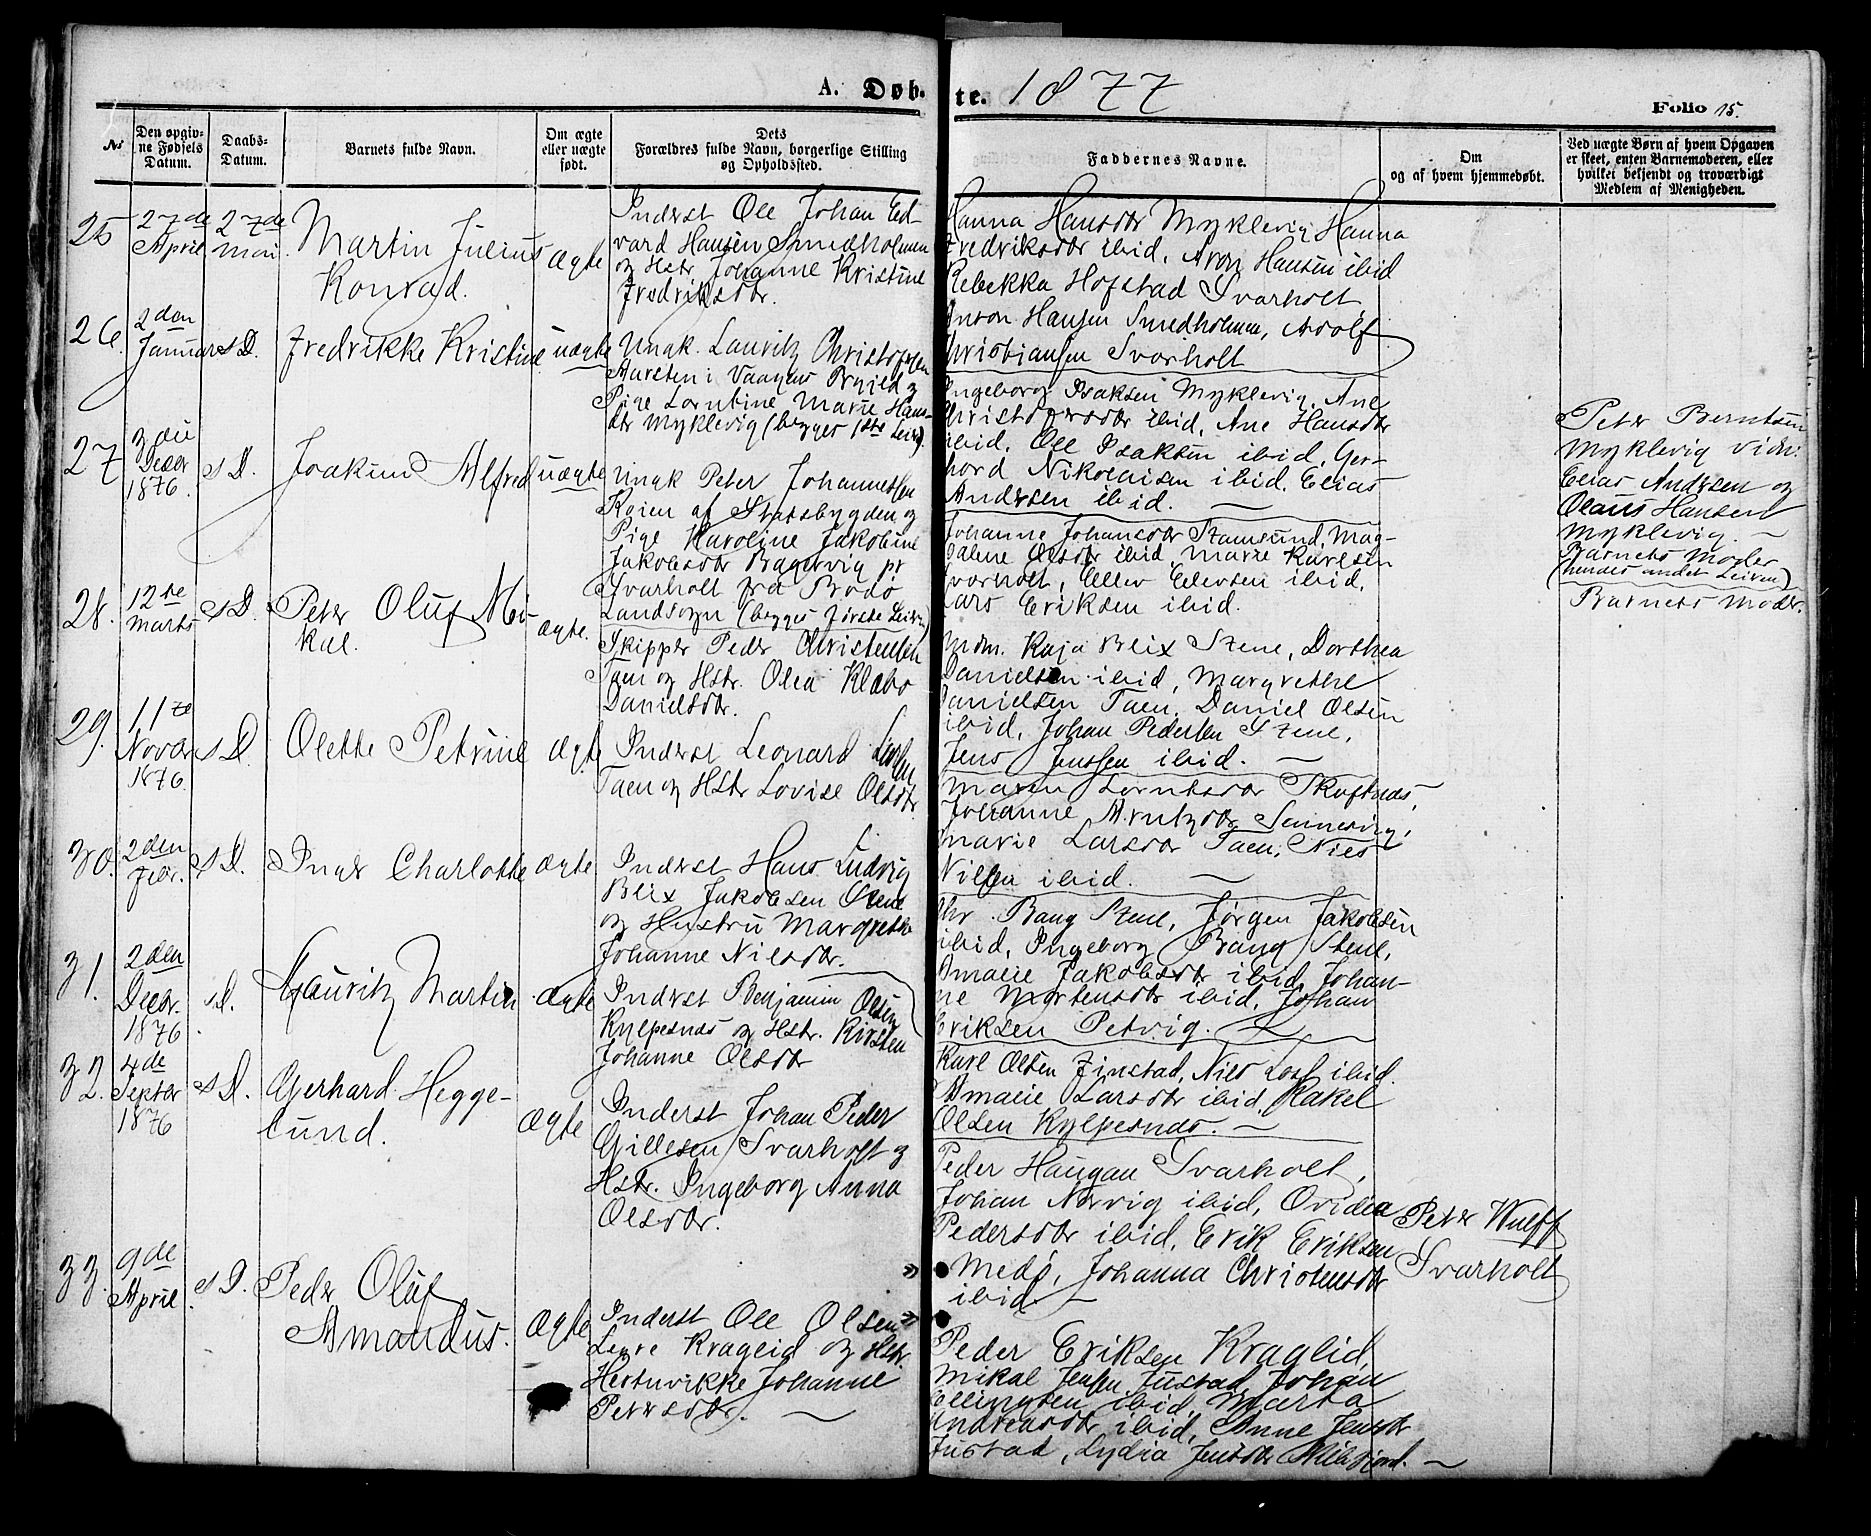 A. Døbte. 1877
Folio 15.
No
Den opgivne Fødsels Datum.
Daabs-Datum.
Barnets fulde Navn.
Om ægte eller uægte født.
Dets Forældres fulde Navn, borgerlige Stilling og Opholdssted.
Faddernes Navne.
Om og af hvem hjemmedøbt.
Ved uægte Børn af hvem Opgaven er skeet, enten Barnemoderen, eller hvilket bekjendt og troværdigt Medlem af Menigheden.
25
27de April
27de Mai
Martin Julius
Konrad.
ægte
Inderst Ole Johan Ed-
vard Hansen Smedholmen
og Hstr. Johanne Kristine
Fredriksdtr.
Hanna Hansdtr Myklevig, Hanna
Fredriksdtr ibid, Aron Hansen ibid
Rebekka Hofstad Svarholt
Anton Hansen Smedholmen, Adolf
Christiansen Svarholt
26.
2den Januar
s D.
Fredrikke Kristine
uægte
Ungk. Lauritz Christophsen
i Vaagens Prgjeld og
Pige Lorntine Marie Hans-
dtr Myklevig (begges 1ste Leier)
Ingeborg Isaksen Myklevig, Ane
Christophersdtr ibid, Ane Hansdtr
ibid, Ole Isaksen ibid, Ger-
hard Nikolaisen ibid, Elias
Andersen ibid.
Peter Berntsen
Myklevig
Elias Andersen og
Olaus Hansen
Myklevig.
Barnets Moder
(hendes andet Leier)
27
3die Decbr 1876.
s D.
Joakim Alfred
uægte
Ungk Peter Johannessen
af Statsbygden og
Pige Karoline Jakobine
Jakobsdtr
Svarholt fra Bodø
Landsogn (begges første Leier)
Johanne Johansdtr Stamsund, Mag-
dalene Olsdtr ibid, Marie Karlsen
Svarholt, Ellev Elevsen ibid,
Lars Eriksen ibid.
Barnets Moder.
28.
12te Marts
s D.
Peter Oluf Mi-
kal.
ægte.
Skipper Peder Christensen
Taen og Hstr. Olea Klabo
Danielsdtr.
Mdm. Kaja Blix Stene, Dorthea
Danielsen ibid, Margrethe
Danielsen Taen, Daniel Olsen
ibid, Johan Pedersen Stene,
Jens Jenssen ibid.
29.
11te Novbr 1876.
s D.
Olette Petrine
ægte
Inderst Leonard
Taen og Hstr Lovise Olsdtr
Maren Lorntsdtr Skoftnes,
Johanne Arntzdtr Sennesvig,
Marie Larsdtr Taen, Niels
Nilsen ibid.
30.
2den Febr.
s D.
Inger Charlotte
ægte
Inderst Hans Ludvig
Blix Jakobsen Stene
og Hustru Margrethe
Johanne Nilsdtr.
Chr. Bang Stene, Jørgen Jakobsen
ibid, Ingeborg Bang Stene,
Amalie Jakobsdtr ibid, Johan-
ne Mortensdtr ibid, Johan
Eriksen Petvig.
31.
2den Decbr. 1876.
s D.
Lauritz Martin
ægte
Inderst Benjamin Olsen
Kylpesnes og Hstr. Kirsten
Johanne Olsdtr
Karl Olsen Finstad, Niels Lost ibid.
Amalie Larsdtr ibid, Rakel
Olsen Kylpesnes.
32.
4de Septbr 1876
s D.
Gerhard Hegge-
lund.
ægte
Inderst Johan Peder
Gillesen Svarholt og
Hstr. Ingeborg Anna
Olsdtr.
Peder Haugan Svarholt,
Johan Norvig ibid, Ovidia
Pedersdtr ibid, Erik Eriksen
Medø, Johanna Christensdtr
ibid.
Peter Wulff
Svarholt
33.
9de April.
s D.
Peder Oluf
Amandus.
ægte
Inderst Ole Olsen
Kragelid og Hstr.
Hertnvikke Johanne
Petersdtr.
Peder Eriksen Kraglid,
Mikal Jensen Justad, Johan
Ellingsen ibid, Marta
Andreasdtr ibid, Anne Jensdtr
Justad, Lydia Jensdtr